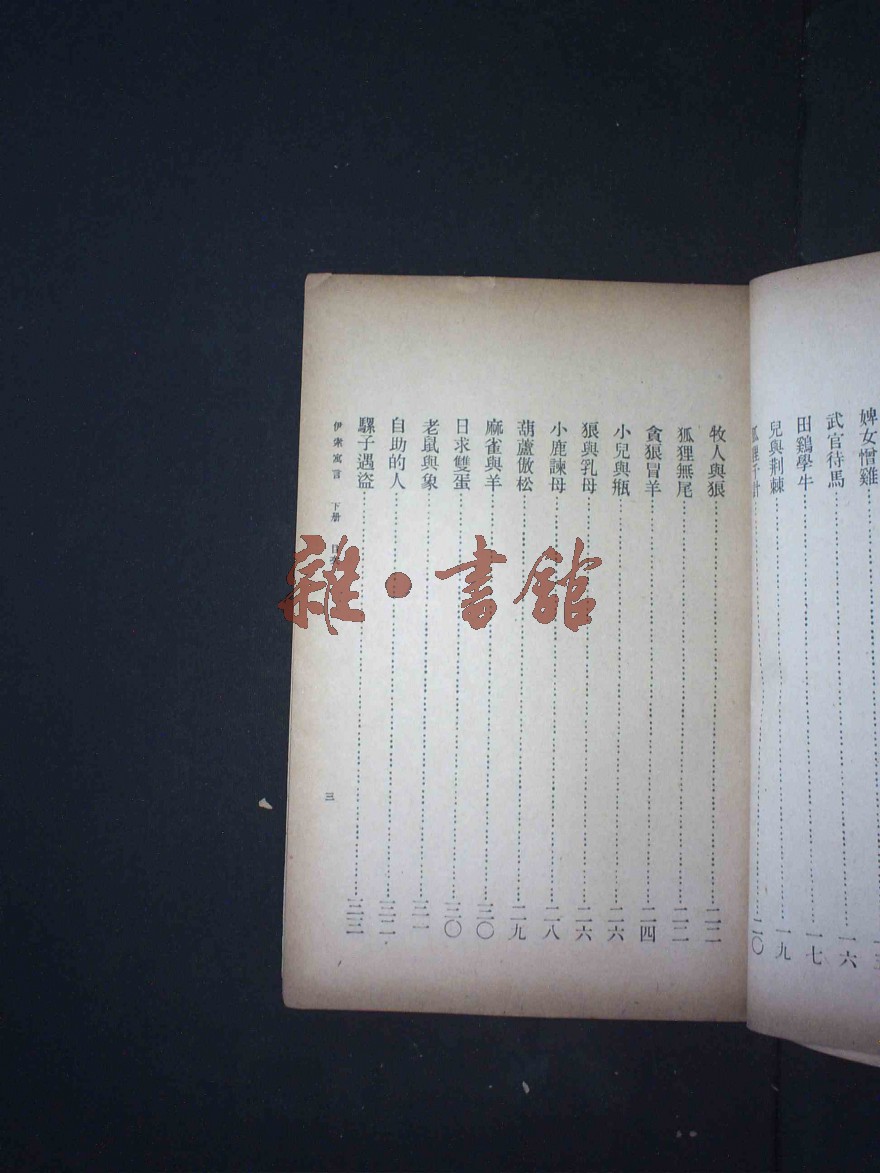 婢女憎雞
武官待馬……一六
田鷄學牛……一七
兒與荆棘……一九
狐狸千計……二〇
牧人與狼……二二
狐狸無尾……二三
貪狼冒羊……二四
小兒與瓶……二六
狼與乳母……二六
小鹿諫母……二八
葫蘆傲松……二九
麻雀與羊……三〇
日求雙蛋……三〇
老鼠與象……三一
自助的人……三二
騾子遇盜……三三
伊索寓言 下册 目次 三
雜·書館